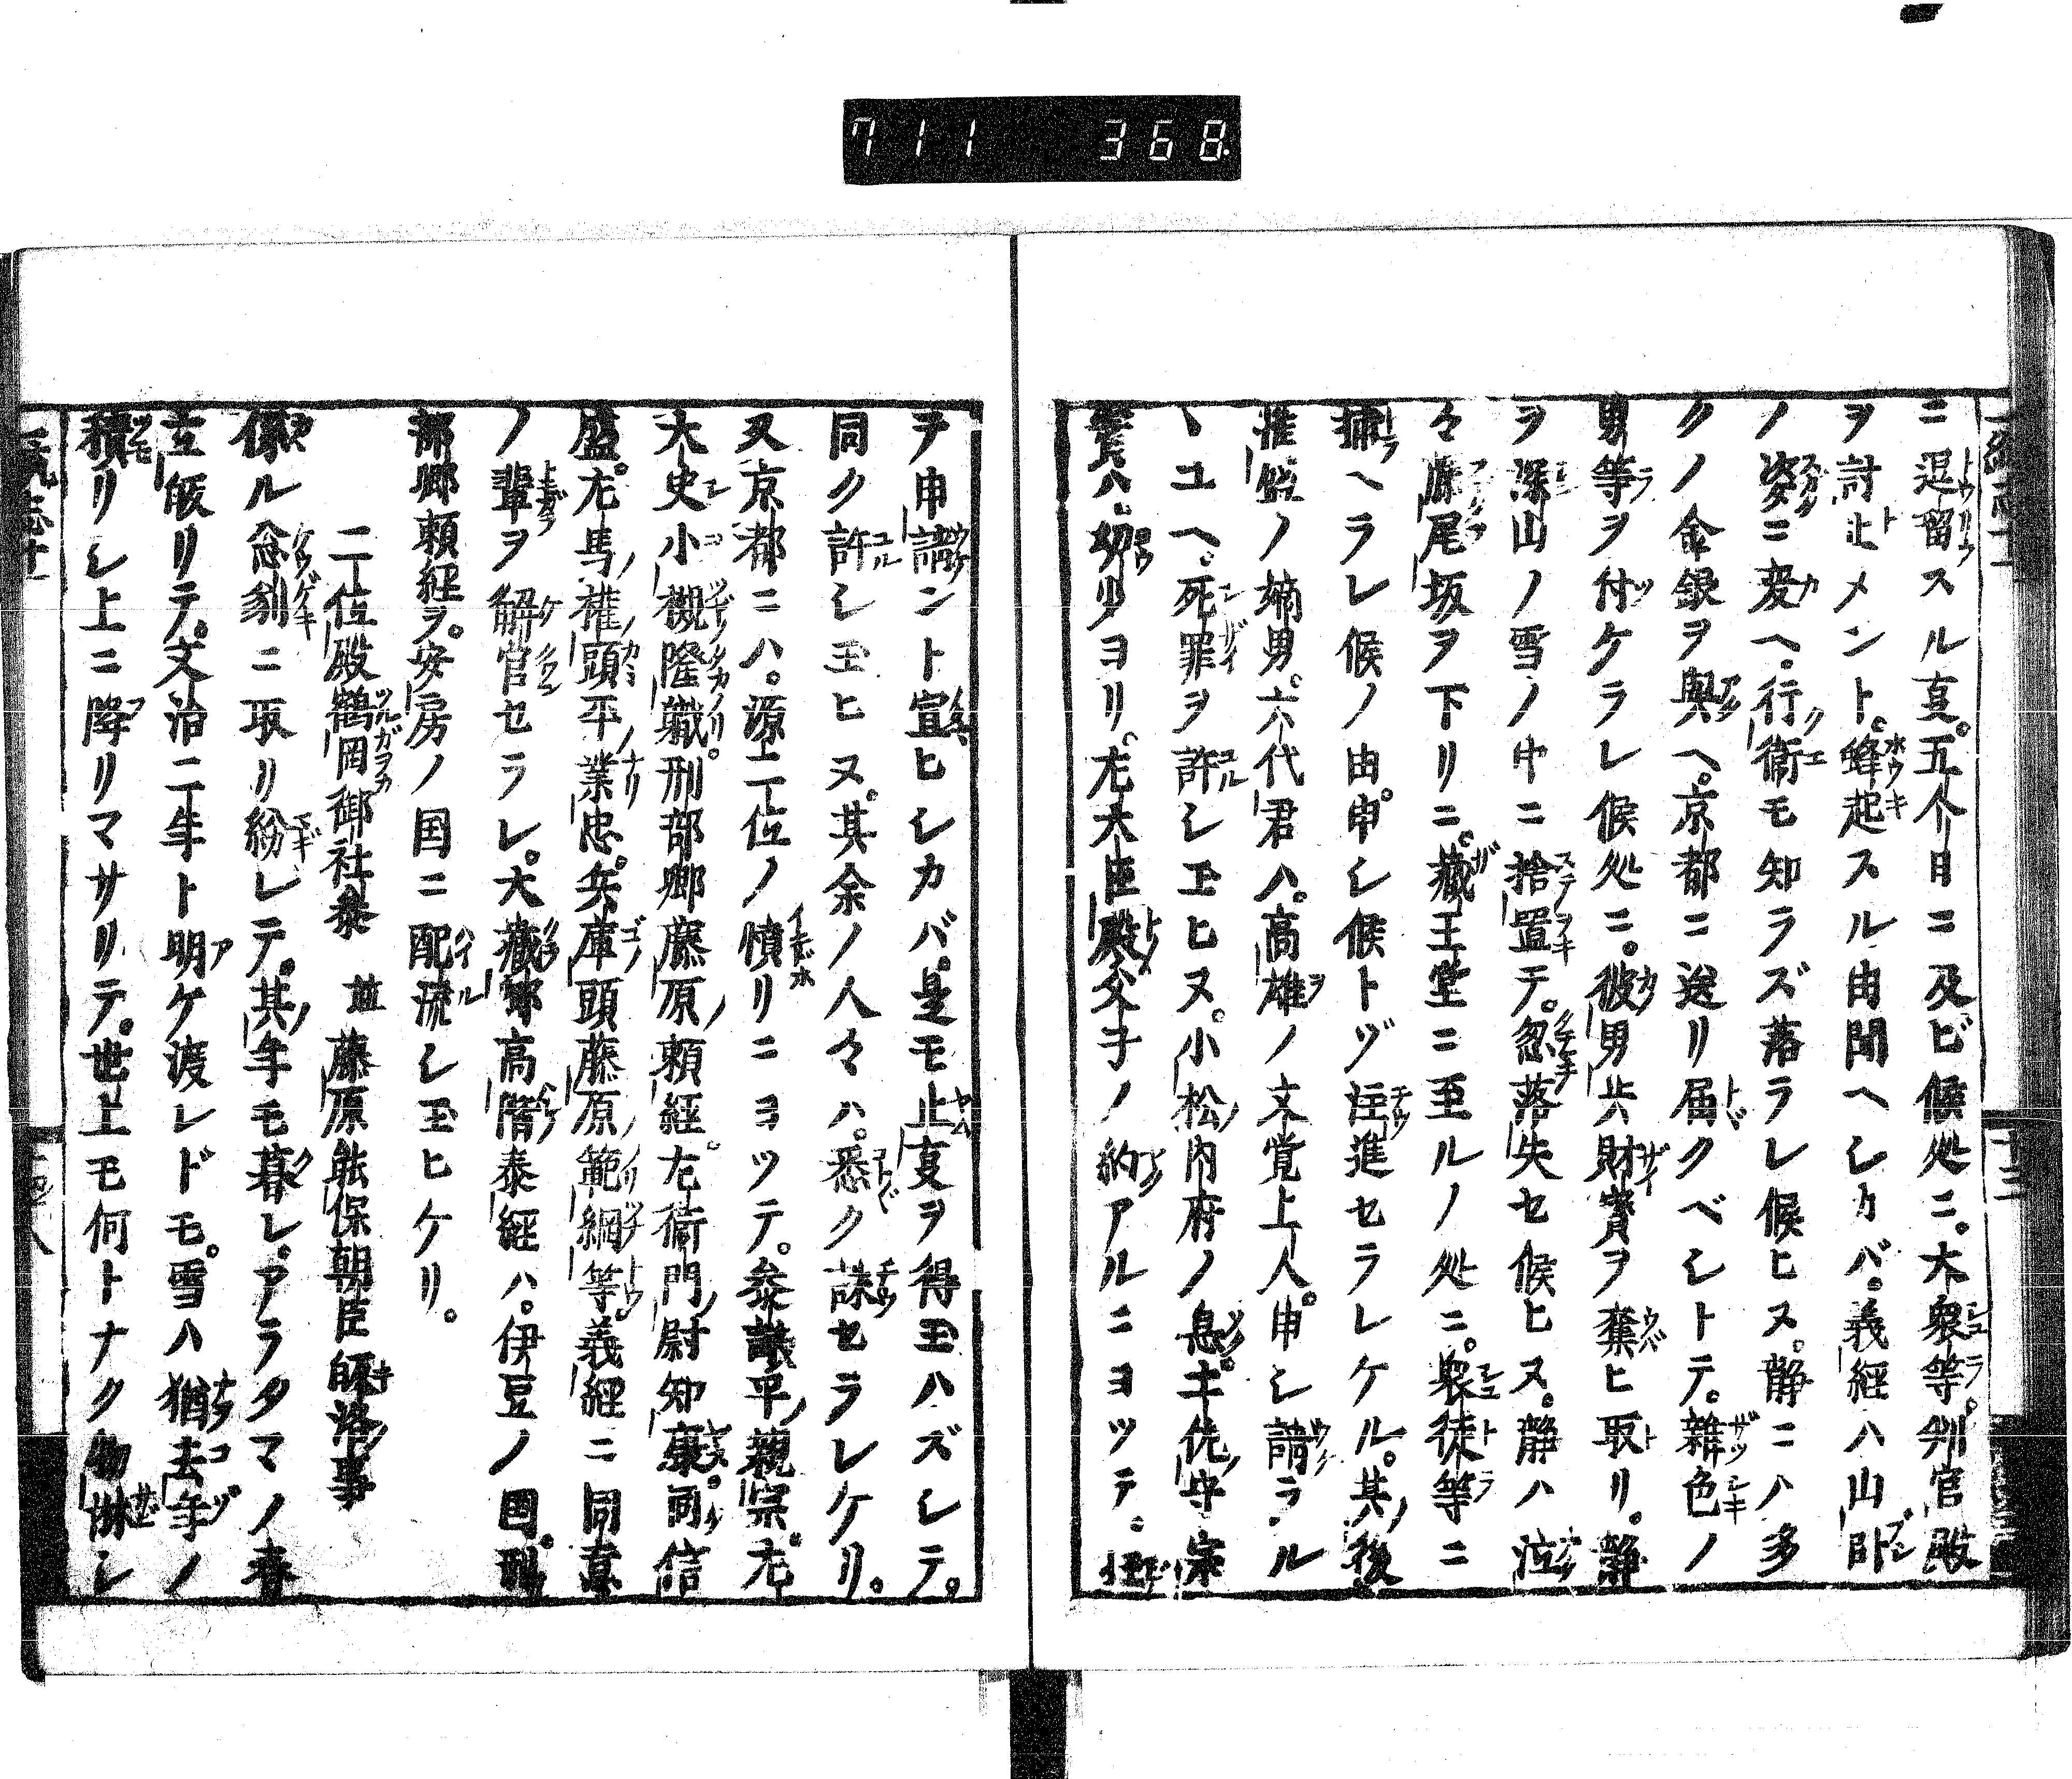 711 368
ニ逗留スル叓。五个日ニ及ビ候処ニ。大衆等。判官殿
ヲ討止メント。蜂起スル由聞ヘシカバ。義経ハ山卧
ノ姿ニ変ヘ。行衞モ知ラズ落ラレ候ヒヌ。静ニハ多
クノ金銀ヲ與ヘ。京都ニ送リ届クベシトテ。雜色ノ
男等ヲ付ケラレ候処ニ。彼男共財寳ヲ奪ヒ取リ。静
ヲ深山ノ雪ノ中ニ捨置テ。忽落失セ候ヒヌ。静ハ泣
々藤尾坂ヲ下リニ。藏王堂ニ至ルノ処ニ。衆徒等ニ
捕ヘラレ候ノ由。申シ候トゾ注進セラレケル。其後
惟盛ノ嫡男。六代君ハ。高雄ノ文覚上人。申シ請ラル
ヽユヘ。死罪ヲ許シ玉ヒヌ。小松内府ノ息。土佐守宗
實ハ。幼少ヨリ。左大臣殿父子ノ約アルニヨツテ。
ヲ申請ント宣ヒシカバ。是モ止叓ヲ得玉ハズシテ。
同ク許シ玉ヒヌ。其余ノ人々ハ。悉ク誅セラレケリ。
又京都ニハ。源二位ノ憤リニヨツテ。参議平親宗。左
大史小槻隆職。刑部卿藤原頼経。左衞門尉知康。同信
盛。左馬權頭平業忠。兵庫頭藤原範綱等。義経ニ同意
ノ輩ヲ解官セラレ。大藏卿高階泰経ハ。伊豆ノ国。刑
部卿頼経ヲ。安房ノ国ニ配流シ玉ヒケリ。
二位殿鶴岡御社参 並 藤原能保朝臣皈洛事
係ル怱劇ニ取リ紛レテ。其年モ暮レ。アラタマノ春
立皈リテ。文治二年ト明ケ渡レドモ。雪ハ猶去年ノ
積リシ上ニ降リマサリテ。世上モ何トナク物淋シ